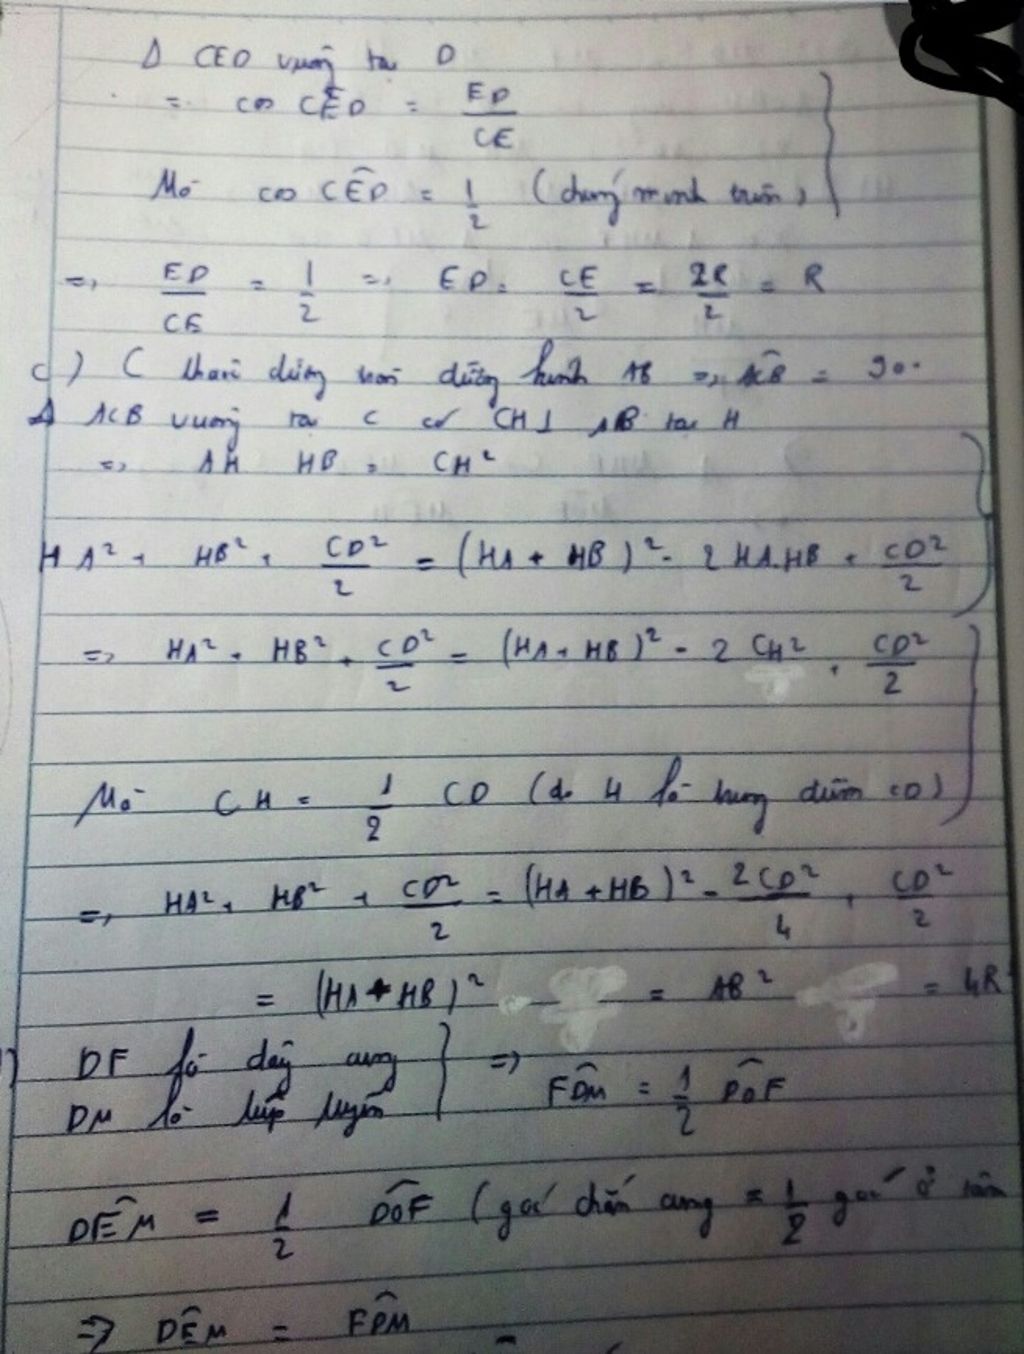 Δ CED vuông tại D
=> cos CÊD = ED/CE
Mà cos CÊD = 1/2 (chứng minh trên)
=> ED/CE = 1/2 => ED = CE/2 = 2R/2 = R
c) C thuộc đường tròn đường kính AB => ACB = 90°
Δ ACB vuông tại C có CH ⊥ AB tại H
=> AH HB = CH²
HA² + HB² + CD²/2 = (HA + HB)² - 2 HA.HB + CD²/2
=> HA² + HB² + CD²/2 = (HA + HB)² - 2 CH² + CD²/2
Mà CH = 1/2 CD (do H là trung điểm CD)
=> HA² + HB² + CD²/2 = (HA + HB)² - 2CD²/4 + CD²/2
= (HA + HB)² = AB² = 4R²
DF là dây cung
DM là tiếp tuyến => FDM = 1/2 DOF
DEM = 1/2 DOF (góc chắn cung = 1/2 góc ở tâm
=> DEM = FDM